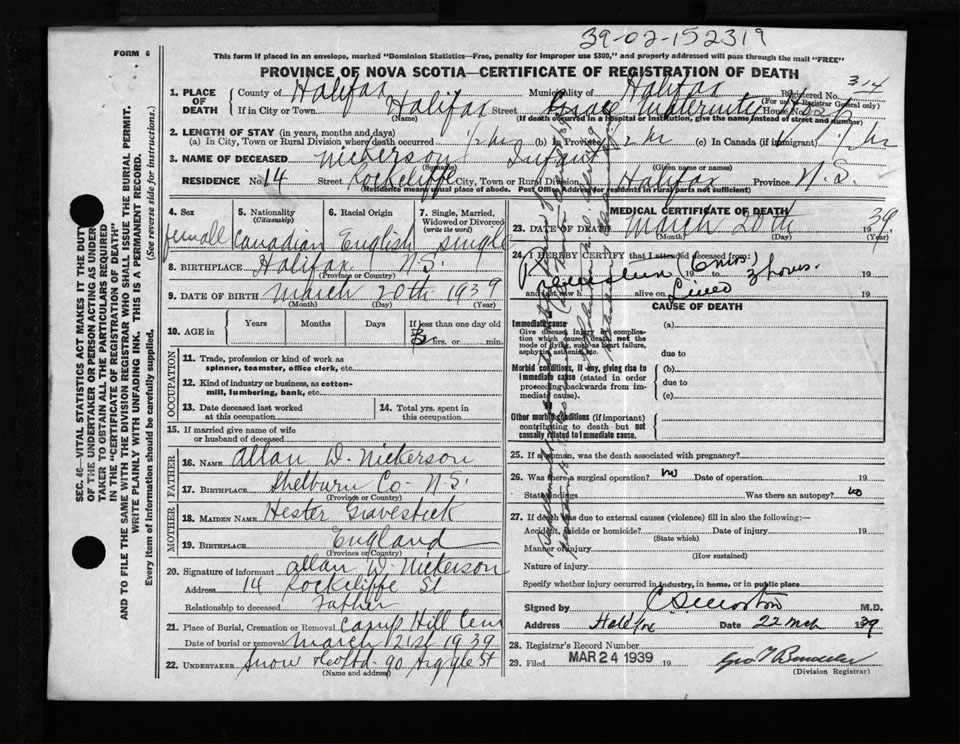 39-02-152319
FORM 6
This form if placed in an envelope, marked "Dominion Statistics—Free, penalty for improper use $300," and properly addressed will pass through the mail "FREE"
PROVINCE OF NOVA SCOTIA—CERTIFICATE OF REGISTRATION OF DEATH
1. PLACE OF DEATH County of Halifax Municipality of Halifax Registered No. 314
(For use of Registrar General only)
If in City or Town Halifax Street Grace Maternity House No. Hosp
(Name) (If death occurred in a hospital or institution, give the name instead of street and number)
2. LENGTH OF STAY (in years, months and days)
(a) In City, Town or Rural Division where death occurred 2 hr (b) In Province 2 hr (c) In Canada (if immigrant) hr
3. NAME OF DECEASED Nickerson Infant
(Surname) (Given name or names)
RESIDENCE No. 14 Street Rockcliffe City, Town or Rural Division Halifax Province N.S.
(Residence means usual place of abode. Post Office Address for rural parts not sufficient)
4. Sex female
5. Nationality (Citizenship) Canadian
6. Racial Origin English
7. Single, Married, Widowed or Divorced (write the word) single
8. BIRTHPLACE Halifax N.S.
(Province or Country)
9. DATE OF BIRTH March 20th 1939
(Month) (Day) (Year)
10. AGE in Years Months Days If less than one day old
hrs. or min.
OCCUPATION
11. Trade, profession or kind of work as spinner, teamster, office clerk, etc.
12. Kind of industry or business, as cotton-mill, lumbering, bank, etc.
13. Date deceased last worked at this occupation
14. Total yrs. spent in this occupation
15. If married give name of wife or husband of deceased
FATHER
16. NAME Allan W. Nickerson
17. BIRTHPLACE Shelburn Co N.S.
(Province or Country)
MOTHER
18. MAIDEN NAME Hester Gravestick
19. BIRTHPLACE England
(Province or Country)
20. Signature of informant Allan W. Nickerson
Address 14 Rockcliffe St
Relationship to deceased Father
21. Place of Burial, Cremation or Removal Camp Hill Cem
Date of burial or removal March 21st 1939
22. UNDERTAKER Snow & Co Ltd - 90 Argyle St
(Name and address)
MEDICAL CERTIFICATE OF DEATH
23. DATE OF DEATH March 20th 1939.
(Month) (Day)
24. I HEREBY CERTIFY that I attended deceased from:
(6 mos.)
19
and last saw h alive on Lived 3 hours. 19
CAUSE OF DEATH
Immediate cause
Give disease, injury or complication which caused death, not the mode of dying, such as heart failure, asphyxia, asthenia, etc.
(a)
due to
Morbid conditions, if any, giving rise to immediate cause (stated in order proceeding backwards from immediate cause).
(b)
due to
(c)
Other morbid conditions (if important) contributing to death but not casually related to immediate cause.
25. If a woman, was the death associated with pregnancy?
26. Was there a surgical operation? no Date of operation 19
State findings Was there an autopsy? no
27. If death was due to external causes (violence) fill in also the following:—
Accident, suicide or homicide? Date of injury 19
(State which)
Manner of injury
(How sustained)
Nature of injury
Specify whether injury occurred in industry, in home, or in public place
Signed by M.D.
Address Halifax Date 22 Mch 1939
28. Registrar's Record Number
29. Filed MAR 24 1939 19
(Division Registrar)
SEC. 46—VITAL STATISTICS ACT MAKES IT THE DUTY
OF THE UNDERTAKER OR PERSON ACTING AS UNDERTAKER
TO OBTAIN ALL THE PARTICULARS REQUIRED
IN THE "CERTIFICATE OF REGISTRATION OF DEATH"
AND TO FILE THE SAME WITH THE DIVISION REGISTRAR WHO SHALL ISSUE THE BURIAL PERMIT.
WRITE PLAINLY WITH UNFADING INK. THIS IS A PERMANENT RECORD.
Every item of information should be carefully supplied. (See reverse side for instructions.)